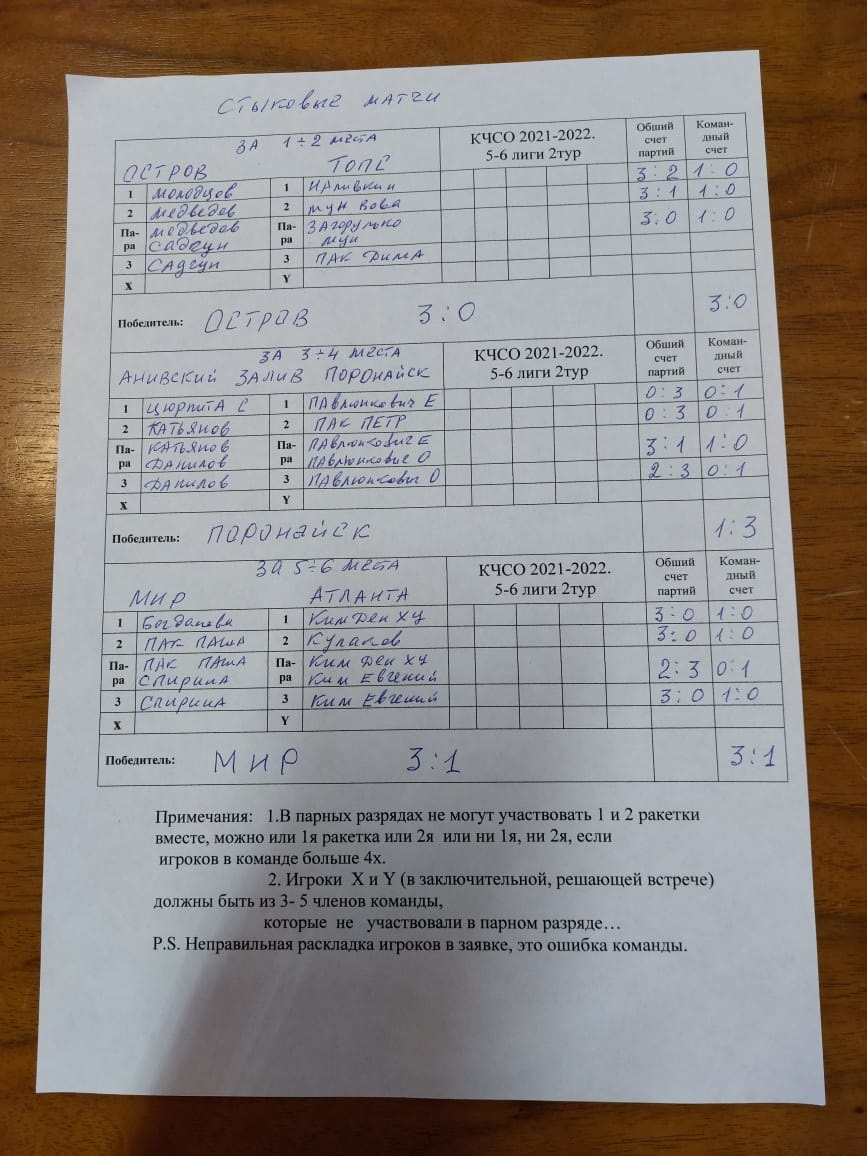 СТЫКОВЫЕ МАТЧИ
ЗА 1÷2 МЕСТА
КЧСО 2021-2022.
5-6 лиги 2тур
Общий счет партий
Коман-дный счет
ОСТРОВ ТОПС
1 МОЛОДЦОВ 1 НАЛИВКИН 3:2 1:0
2 МЕДВЕДЕВ 2 МУН ВОВА 3:1 1:0
Па-ра МЕДВЕДЕВ САДСУН Па-ра ЗАГОРУЛЬКО МУН 3:0 1:0
3 САДСУН 3 ПАК ДИМА
X Y
Победитель: ОСТРОВ 3:0 3:0
ЗА 3÷4 МЕСТА
КЧСО 2021-2022.
5-6 лиги 2тур
Общий счет партий
Коман-дный счет
АНИВСКИЙ ЗАЛИВ ПОРОНАЙСК
1 ЦЮРПИТА С 1 ПАВЛЮНКОВИЧ Е 0:3 0:1
2 КАТЬЯНОВ 2 ПАК ПЕТР 0:3 0:1
Па-ра КАТЬЯНОВ ДАНИЛОВ Па-ра ПАВЛЮНКОВИЧ Е ПАВЛЮНКОВИЧ О 3:1 1:0
3 ДАНИЛОВ 3 ПАВЛЮНКОВИЧ О 2:3 0:1
X Y
Победитель: ПОРОНАЙСК 1:3
ЗА 5÷6 МЕСТА
КЧСО 2021-2022.
5-6 лиги 2тур
Общий счет партий
Коман-дный счет
МИР АТЛАНТА
1 Богданова 1 Ким Ден Ху 3:0 1:0
2 ПАК ПАША 2 Кулаков 3:0 1:0
Па-ра ПАК ПАША СПИРИНА Па-ра Ким Ден Ху Ким Евгений 2:3 0:1
3 СПИРИНА 3 Ким Евгений 3:0 1:0
X Y
Победитель: МИР 3:1 3:1
Примечания: 1.В парных разрядах не могут участвовать 1 и 2 ракетки
вместе, можно или 1я ракетка или 2я или ни 1я, ни 2я, если
игроков в команде больше 4х.
2. Игроки X и Y (в заключительной, решающей встрече)
должны быть из 3- 5 членов команды,
которые не участвовали в парном разряде…
P.S. Неправильная раскладка игроков в заявке, это ошибка команды.